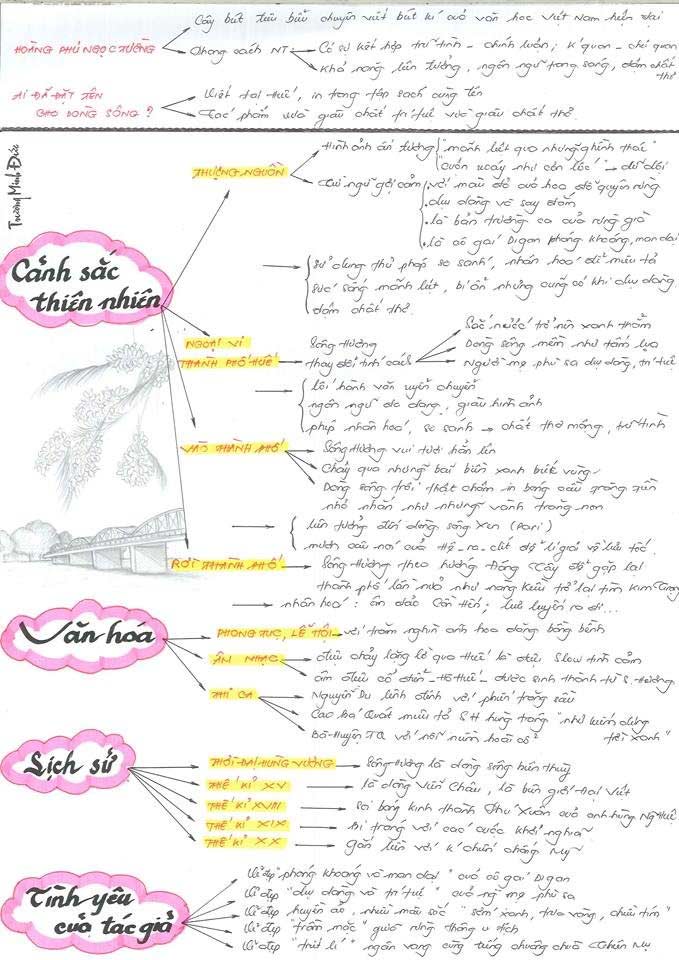 Cây bút tiêu biểu chuyên viết bút kí của văn học Việt Nam hiện đại
HOÀNG PHỦ NGỌC TƯỜNG
Phong cách NT
Có sự kết hợp trữ tình - chính luận; k quan - chủ quan
Khả năng liên tưởng, ngôn ngữ trong sáng, đậm chất thơ
AI ĐÃ ĐẶT TÊN
CHO DÒNG SÔNG ?
Viết tại Huế, in trong tập sách cùng tên
Tác phẩm vừa giàu chất trí tuệ vừa giàu chất thơ.
Trương Minh Đức
Cảnh sắc
thiên nhiên
THƯỢNG NGUỒN
Hình ảnh ấn tượng
"mãnh liệt qua những ghềnh thác"
"cuộn xoáy như cơn lốc" → dữ dội
Từ ngữ gợi cảm
với màu đỏ của hoa đỗ quyên rừng
dịu dàng và say đắm
là bản trường ca của rừng già
là cô gái Digan phóng khoáng, man dại
sử dụng thủ pháp so sánh, nhân hoá để miêu tả
sức sống mãnh liệt, bí ẩn nhưng cũng có khi dịu dàng
đậm chất thơ.
NGOẠI VI
THÀNH PHỐ HUẾ
Sông Hương
thay đổi tính cách
Sắc nước trở nên xanh thẳm
Dòng sông mềm như tấm lụa
Người mẹ phù sa dịu dàng, trí tuệ
lối hành văn uyển chuyển
ngôn ngữ đa dạng, giàu hình ảnh
phép nhân hoá, so sánh → chất thơ mộng, trữ tình
VÀO THÀNH PHỐ
Sông Hương vui tươi hẳn lên
Chảy qua những bãi biền xanh biếc vùng
Dòng sông trôi thật chậm in bóng cầu trắng gần
nhỏ nhắn như những vành trăng non
liên tưởng đến dòng sông Xen (Pari)
mượn câu nói của Hê-ra-clit để lí giải về lưu tốc.
RỜI THÀNH PHỐ
Sông Hương theo hướng Đông Tây để gặp lại
thành phố lần nữa như nàng Kiều trở lại tìm Kim Trọng
nhân hoá : âm đảo Cồn Hến; lưu luyến ra đi...
Văn hóa
PHONG TỤC, LỄ HỘI
với trăm nghìn ánh hoa đăng bồng bềnh
ÂM NHẠC
điệu chảy lặng lờ qua Huế là điệu Slow tình cảm
âm điệu cổ điển - Huế - được sinh thành từ S. Hương
THI CA
Nguyễn Du lênh đênh với phiến trăng sầu
Cao Bá Quát miêu tả SH hùng tráng "như kiếm dựng trời xanh"
Bà Huyện TQ với nỗi niềm hoài cổ
Lịch sử
THỜI ĐẠI HÙNG VƯƠNG
Sông Hương là dòng sông biên thuỳ
THẾ KỈ XV
là dòng Viễn Châu, là biên giới Đại Việt
THẾ KỈ XVIII
Soi bóng kinh thành Phú Xuân của anh hùng Ng Huệ
THẾ KỈ XIX
Bi tráng với các cuộc khởi nghĩa
THẾ KỈ XX
gắn liền với k chiến chống Mỹ
Tình yêu
của tác giả
Vẻ đẹp "phóng khoáng và man dại" của cô gái Digan
Vẻ đẹp "dịu dàng và trí tuệ" của ng mẹ phù sa
Vẻ đẹp huyền ảo, nhiều màu sắc "sớm xanh, trưa vàng, chiều tím"
Vẻ đẹp "trầm mặc" giữa rừng thông u tịch
Vẻ đẹp "triết lí" ngân vang cùng tiếng chuông chùa Thiên Mụ